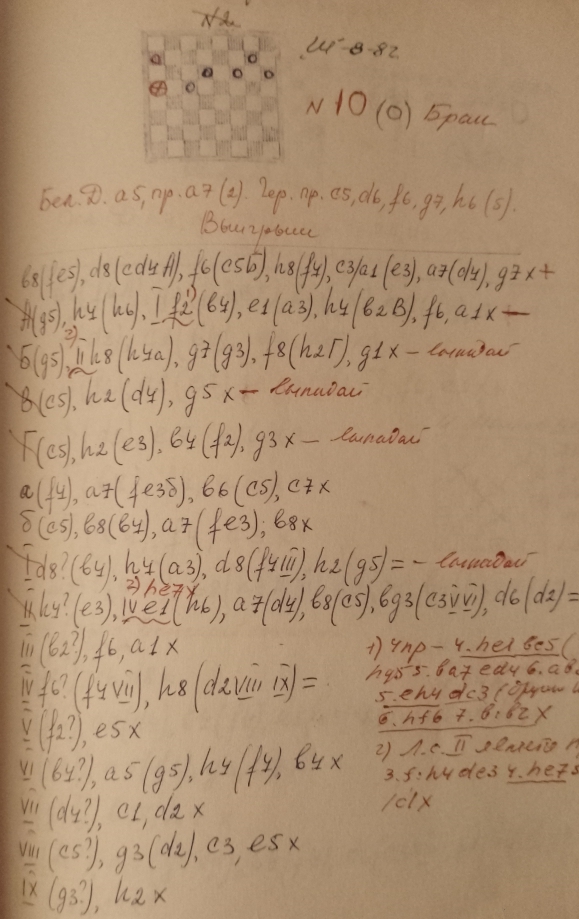 III-8-82
N 10 (0) Брам
Бел. Д. a5, пр. a7 (2). Чер. пр. c5, d6, f6, g7, h6 (5).
Выигрыш
b8(fe5), d8(cd4A), f6(c5Б), h8(f4), c3/a1(e3), a7(d4), g7x+
A(g5), h4(h6), I f2(b4), e1(a3), h4(b2B), f6, a1x —
Б(g5), II h8(h4a), g7(g3), f8(h2Г), g1x — выпадай
B(c5), h2(d4), g5x — выпадай
Г(c5), h2(e3), b4(f2), g3x — выпадай
a(f4), a7(fe3б), b6(c5), c7x
б(c5), b8(b4), a7(fe3), b8x
I d8?(b4), h4(a3), d8(f4III), h2(g5)= — выпадай
2) he7x
II h4?(e3), IV e1(h6), a7(d4), b8(c5), bg3(c3V VI), d6(d2)=
III (b2?), f6, a1x
IV f6?(f4VII), h8(d2VIII IX)=
V (f2?), e5x
VI (b4?), a5(g5), h4(f4), b4x
VII (d4?), c1, d2x
VIII (c5?), g3(d2), c3, e5x
IX (g3?), h2x
1) 4пр — 4. he1 bc5(
hg5 5. ba7 ed4 6. ab
5. eh4 dc3 (
6. hf6 7. b:b2x
2) Л.с. II
3. f:h4 de3 4. he7
/c1x